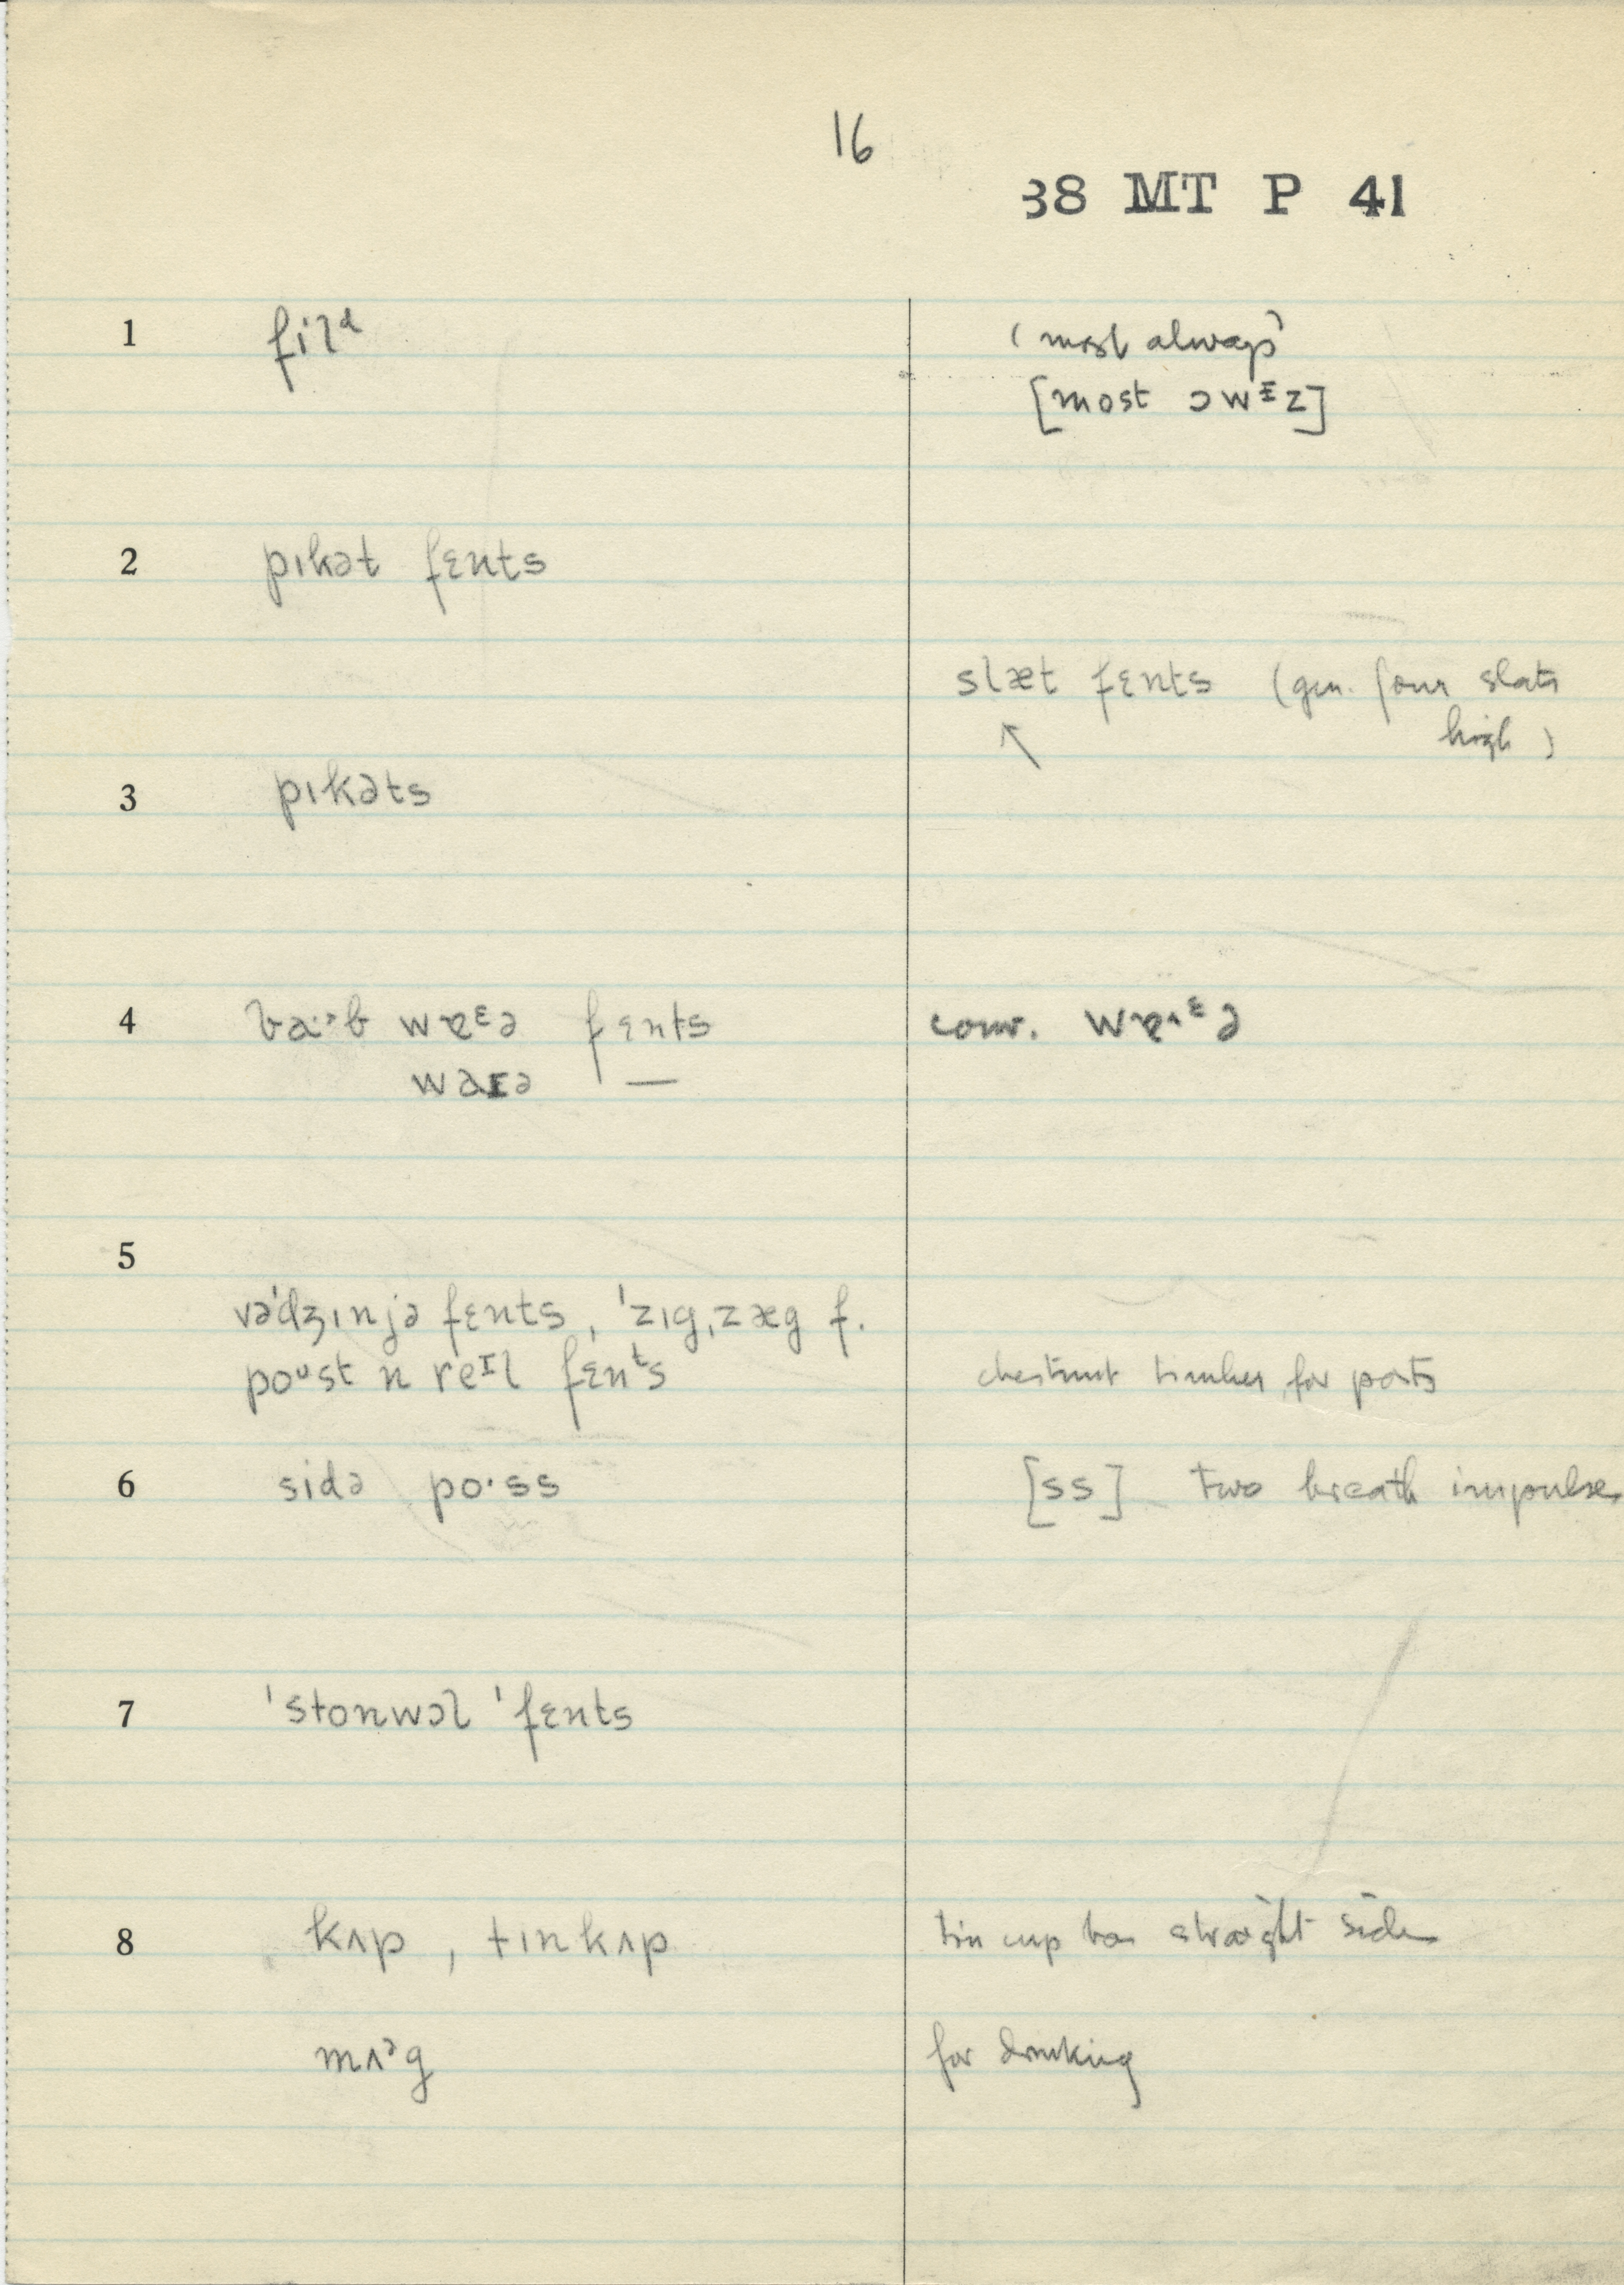 16
38 MT P 41
1 filᵈ (most always)
[most ɔwᴵz]
2 pɪkət fɛnts
slæt fɛnts (gen. four slats
high)
3 pɪkəts
4 fɛnts conv.
waɪə —
5
vədʒɪnjə fɛnts, ˈzɪgˌzæg f.
poᶷst n reᴵl fɛnᵗs chestnut timber for posts
6 sidə po·ss [ss] two breath impulses
7 ˈstonwɔl ˈfɛnts
8 kʌp, tɪnkʌp tin cup has straight sides
mʌᵊg for drinking